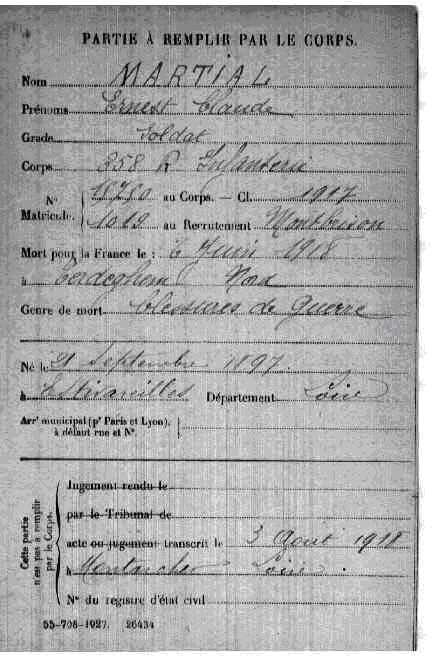 PARTIE À REMPLIR PAR LE CORPS.
Nom MARTIAL
Prénoms Ernest Claude
Grade Soldat
Corps 358 R Infanterie
N° Matricule. 18780 au Corps. — Cl. 1917
1019 au Recrutement Montbrison
Mort pour la France le : 6 Juin 1918
à Nord
Genre de mort blessures de Guerre
Né le 21 Septembre 1897
à Estivareilles Département Loire
Arrt municipal (pr Paris et Lyon), à défaut rue et N°.
Cette partie n'est pas à remplir par le Corps.
Jugement rendu le
par le Tribunal de
acte ou jugement transcrit le 3 Août 1918
à Montarcher Loire.
N° du registre d'état civil
55-708-1927. 26434